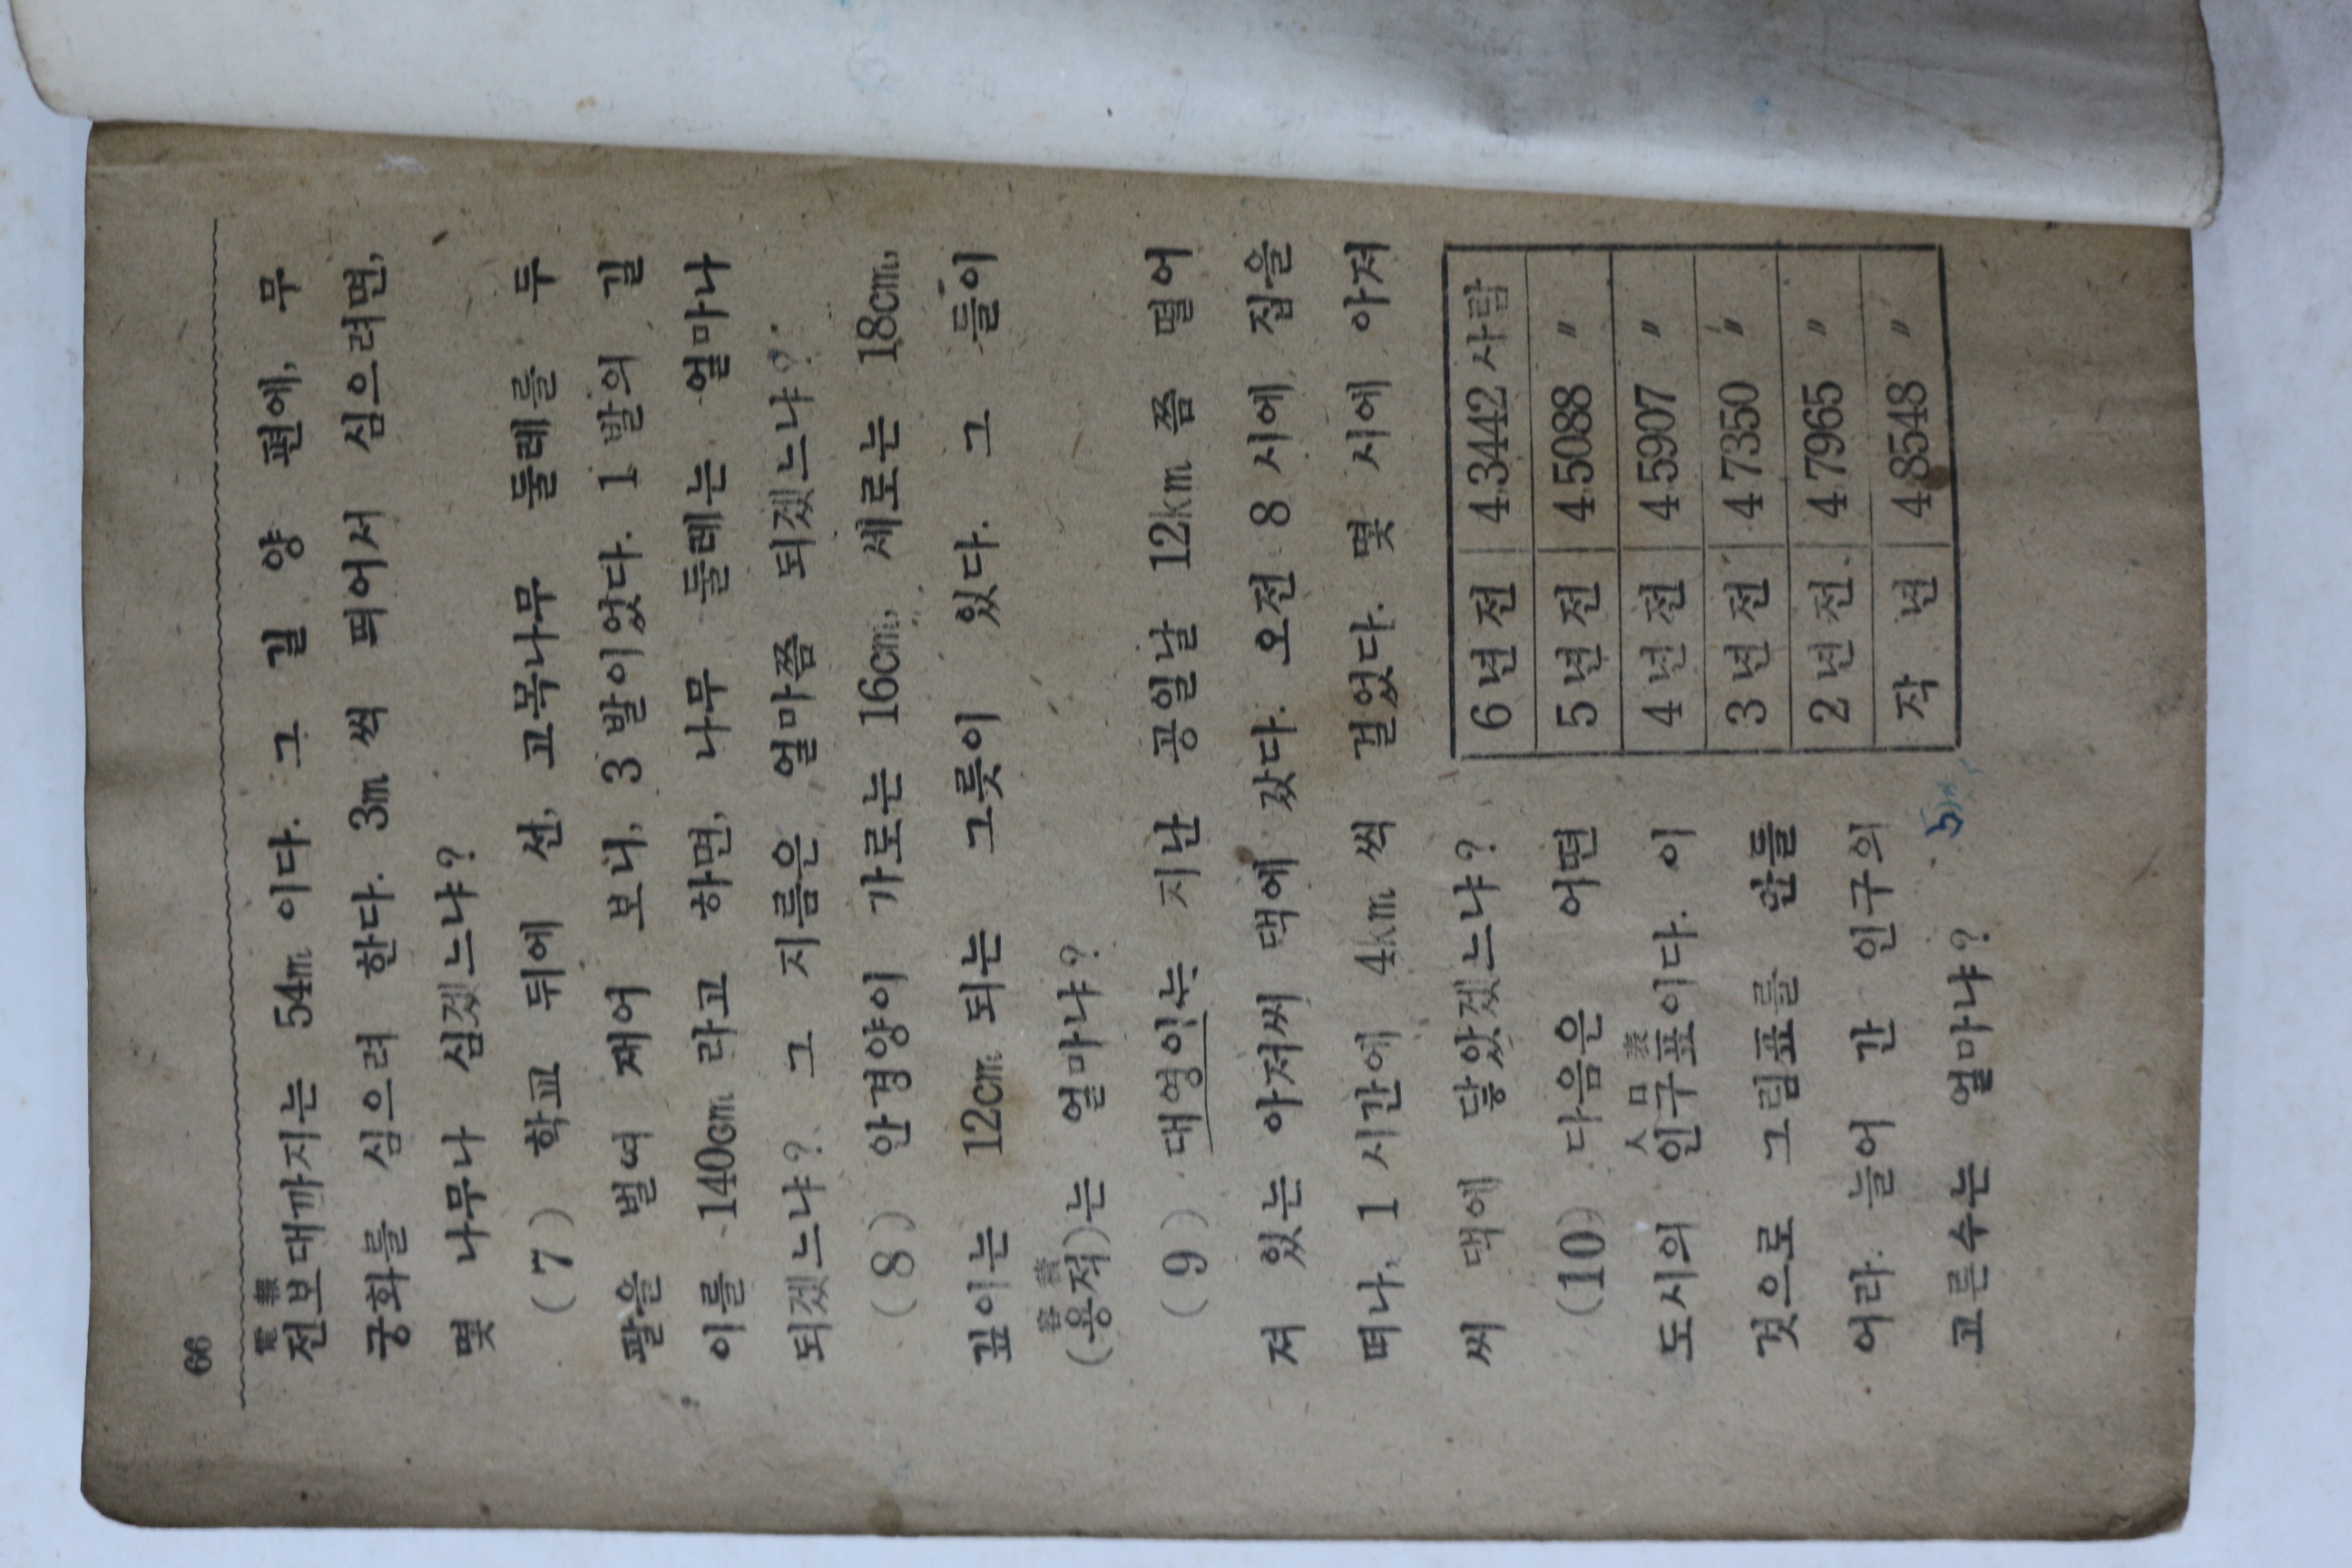 66
電報
전보대까지는 54m 이다. 그 길 양 편에, 무
궁화를 심으려 한다. 3m 씩 띄어서 심으려면,
몇 나무나 심겠느냐?
(7) 학교 뒤에 선, 고목나무 둘레를 두
팔을 벌여 재어 보니, 3 발이었다. 1 발의 길
이를 140cm 라고 하면, 나무 둘레는 얼마나
되겠느냐? 그 지름은 얼마쯤 되겠느냐?
(8) 안경양이 가로는 16cm, 세로는 18cm,
깊이는 12cm 되는 그릇이 있다. 그 들이
容積
(용적)는 얼마냐?
(9) 대영이는 지난 공일날 12km 쯤 떨어
져 있는 아저씨 댁에 갔다. 오전 8 시에 집을
떠나, 1 시간에 4km 씩 걸었다. 몇 시에 아저
씨 댁에 닿았겠느냐?
(10) 다음은 어떤
人口表
도시의 인구표이다. 이
것으로 그림표를 만들
어라. 늘어 간 인구의
고른수는 얼마냐?
6 년 전 4,3442 사람
5 년 전 4,5088 〃
4 년 전 4,5907 〃
3 년 전 4,7350 〃
2 년 전 4,7965 〃
작 년 4,8548 〃